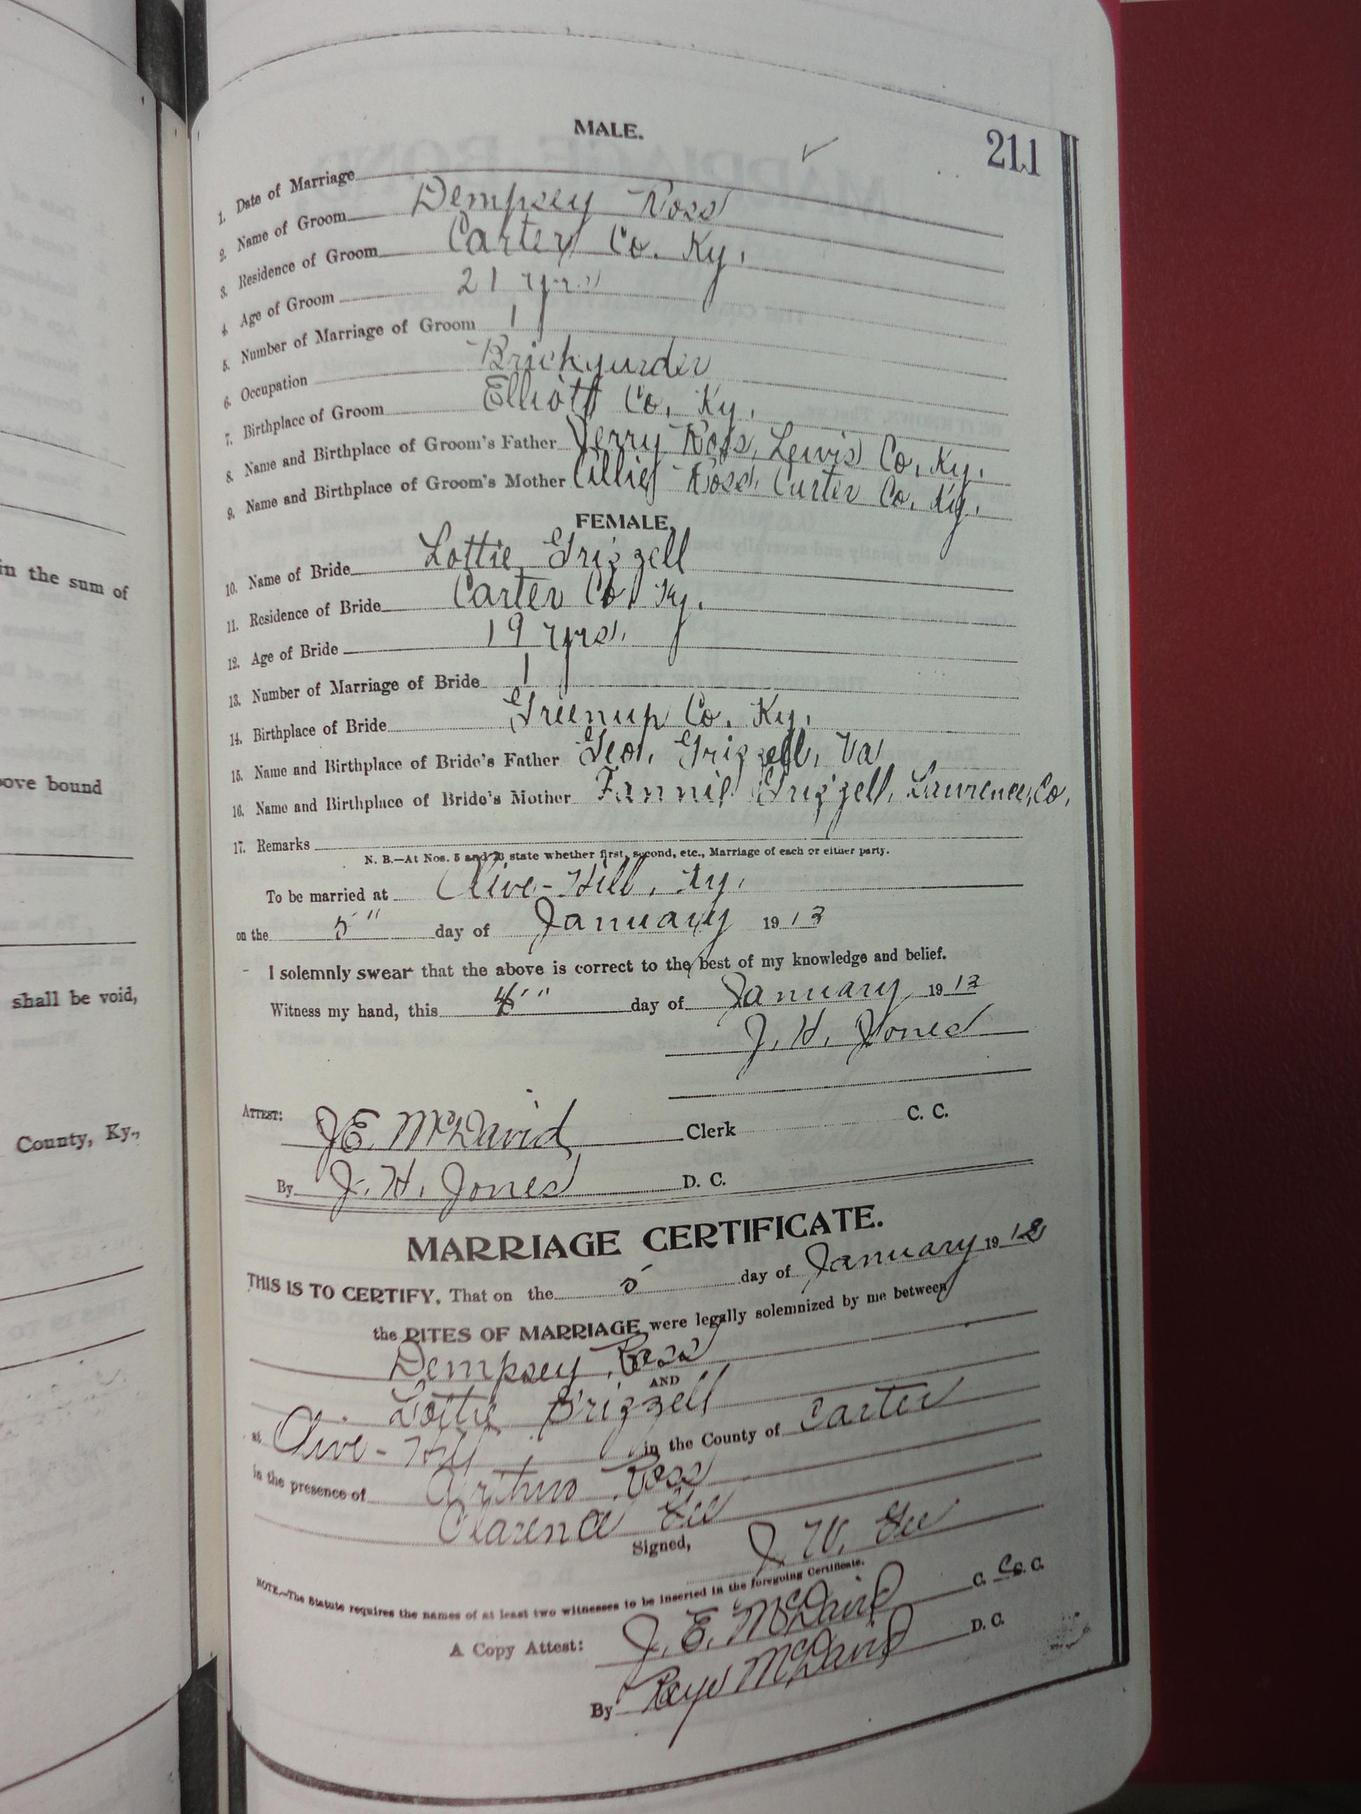 211
MALE.
1. Date of Marriage
2. Name of Groom Dempsey Ross
3. Residence of Groom Carter Co. Ky.
4. Age of Groom 21 yrs
5. Number of Marriage of Groom 1
6. Occupation Brickyarder
7. Birthplace of Groom Elliott Co. Ky.
8. Name and Birthplace of Groom's Father Jerry Ross, Lewis Co. Ky.
9. Name and Birthplace of Groom's Mother Ross, Carter Co. Ky.
FEMALE.
10. Name of Bride Lottie Grizzell
11. Residence of Bride Carter Co. Ky.
12. Age of Bride 19 yrs.
13. Number of Marriage of Bride 1
14. Birthplace of Bride Greenup Co. Ky.
15. Name and Birthplace of Bride's Father Geo. Grizzell, Va
16. Name and Birthplace of Bride's Mother Fannie Grizzell, Lawrence, Co.
17. Remarks
N. B.—At Nos. 5 and 13 state whether first, second, etc., Marriage of each or either party.
To be married at Olive-Hill, Ky.
on the 5" day of January 1913
I solemnly swear that the above is correct to the best of my knowledge and belief.
Witness my hand, this day of January 1913
J. H. Jones
ATTEST: J.E. McDavid Clerk C. C.
By J. H. Jones D. C.
MARRIAGE CERTIFICATE.
THIS IS TO CERTIFY, That on the 5 day of January 19
the RITES OF MARRIAGE were legally solemnized by me between
Dempsey Ross
AND
Lottie Grizzell
at Olive-Hill in the County of Carter
in the presence of Ross
Clarence Gee
Signed, J. W. Gee
NOTE.—The Statute requires the names of at least two witnesses to be inserted in the foregoing Certificate.
A Copy Attest: J. E. McDavid C. C. C.
By McDavid D. C.
in the sum of
ove bound
shall be void,
County, Ky.,